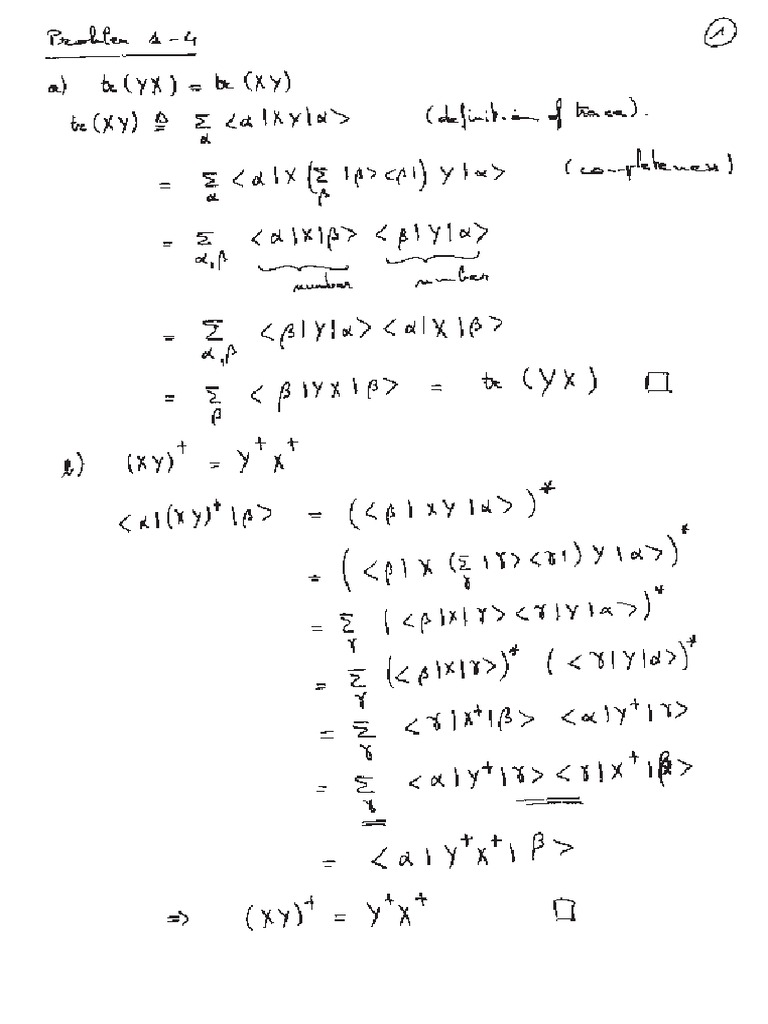 Problem 1-4 ①
a) tr(YX) = tr(XY)
tr(XY) ≙ Σ_α <α|XY|α> (definition of trace).
= Σ_α <α|X (Σ_β |β><β|) Y|α> (completeness)
= Σ_α,β <α|X|β> <β|Y|α>
number number
= Σ_α,β <β|Y|α><α|X|β>
= Σ_β <β|YX|β> = tr(YX) □
b) (XY)⁺ = Y⁺X⁺
<α|(XY)⁺|β> = (<β|XY|α>)*
= (<β|X (Σ_γ |γ><γ|) Y|α>)*
= Σ_γ (<β|X|γ><γ|Y|α>)*
= Σ_γ (<β|X|γ>)* (<γ|Y|α>)*
= Σ_γ <γ|X⁺|β> <α|Y⁺|γ>
= Σ_γ <α|Y⁺|γ><γ|X⁺|β>
= <α|Y⁺X⁺|β>
⇒ (XY)⁺ = Y⁺X⁺ □